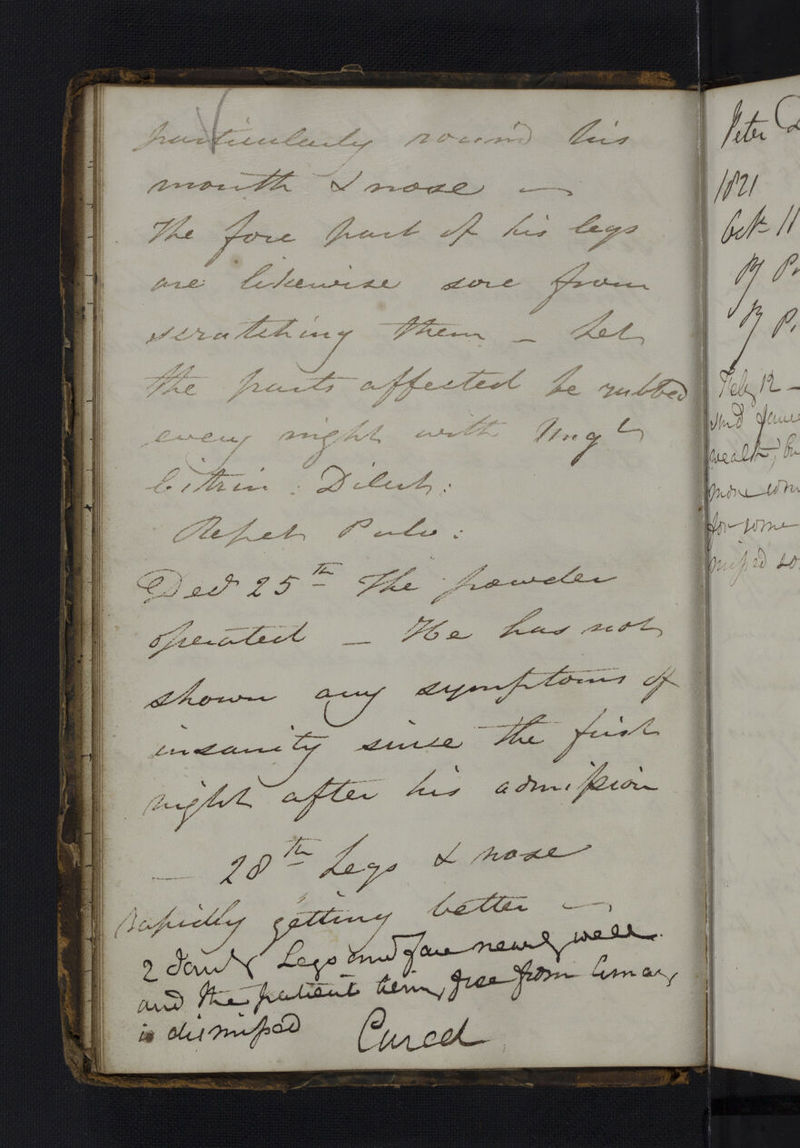 particularly round his
mouth & nose —
The fore part of his legs
are likewise sore from
scratching them — Let
the parts affected be rubbed
every night with Ungt
Citrin: Dilut:
Repet Pulv:
Decr 25th The powder
operated — He has not
shown any symptoms of
insanity since the first
night after his admission
— 28th Legs & nose
rapidly getting better —
2 Jany Legs and face nearly well
and the patient being free from
is dismissed Cured
Peter
1821
Oct 11
By
By
Feby 12 —
and
more
for some
missed